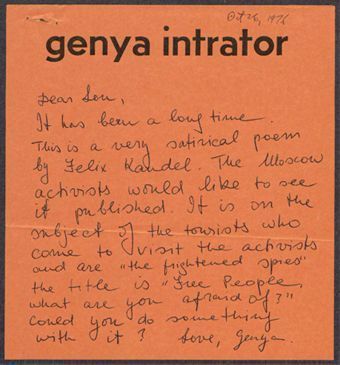 Oct 26, 1976
genya intrator
Dear Lou,
It has been a long time.
This is a very satirical poem
by Felix Kandel. The Moscow
activists would like to see
it published. It is on the
subject of the tourists who
come to visit the activists
and are "the frightened spies"
the title is "Free People,
what are you afraid of?"
Could you do something
with it? Love, Genya.